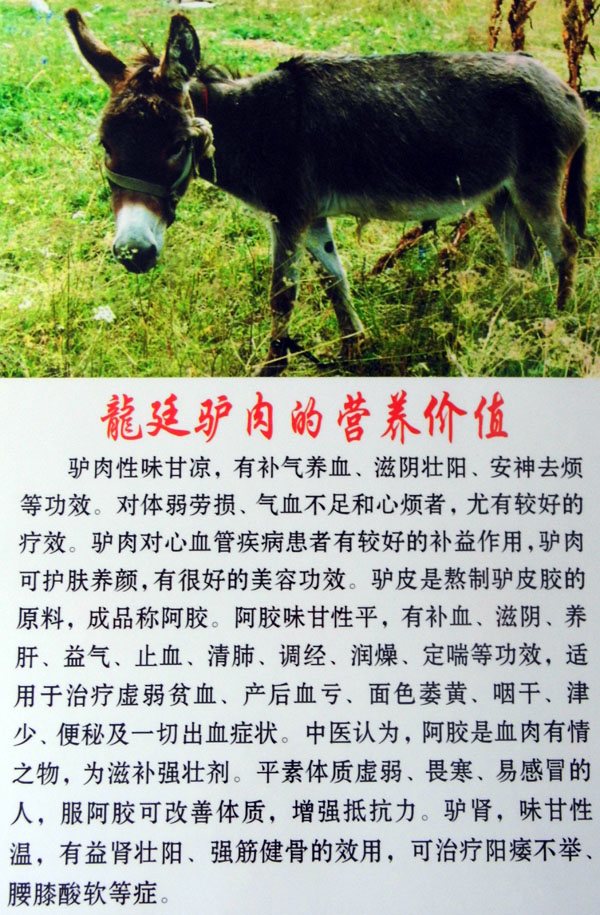 龍廷驴肉的营养价值
驴肉性味甘凉，有补气养血、滋阴壮阳、安神去烦
等功效。对体弱劳损、气血不足和心烦者，尤有较好的
疗效。驴肉对心血管疾病患者有较好的补益作用，驴肉
可护肤养颜，有很好的美容功效。驴皮是熬制驴皮胶的
原料，成品称阿胶。阿胶味甘性平，有补血、滋阴、养
肝、益气、止血、清肺、调经、润燥、定喘等功效，适
用于治疗虚弱贫血、产后血亏、面色萎黄、咽干、津
少、便秘及一切出血症状。中医认为，阿胶是血肉有情
之物，为滋补强壮剂。平素体质虚弱、畏寒、易感冒的
人，服阿胶可改善体质，增强抵抗力。驴肾，味甘性
温，有益肾壮阳、强筋健骨的效用，可治疗阳痿不举、
腰膝酸软等症。